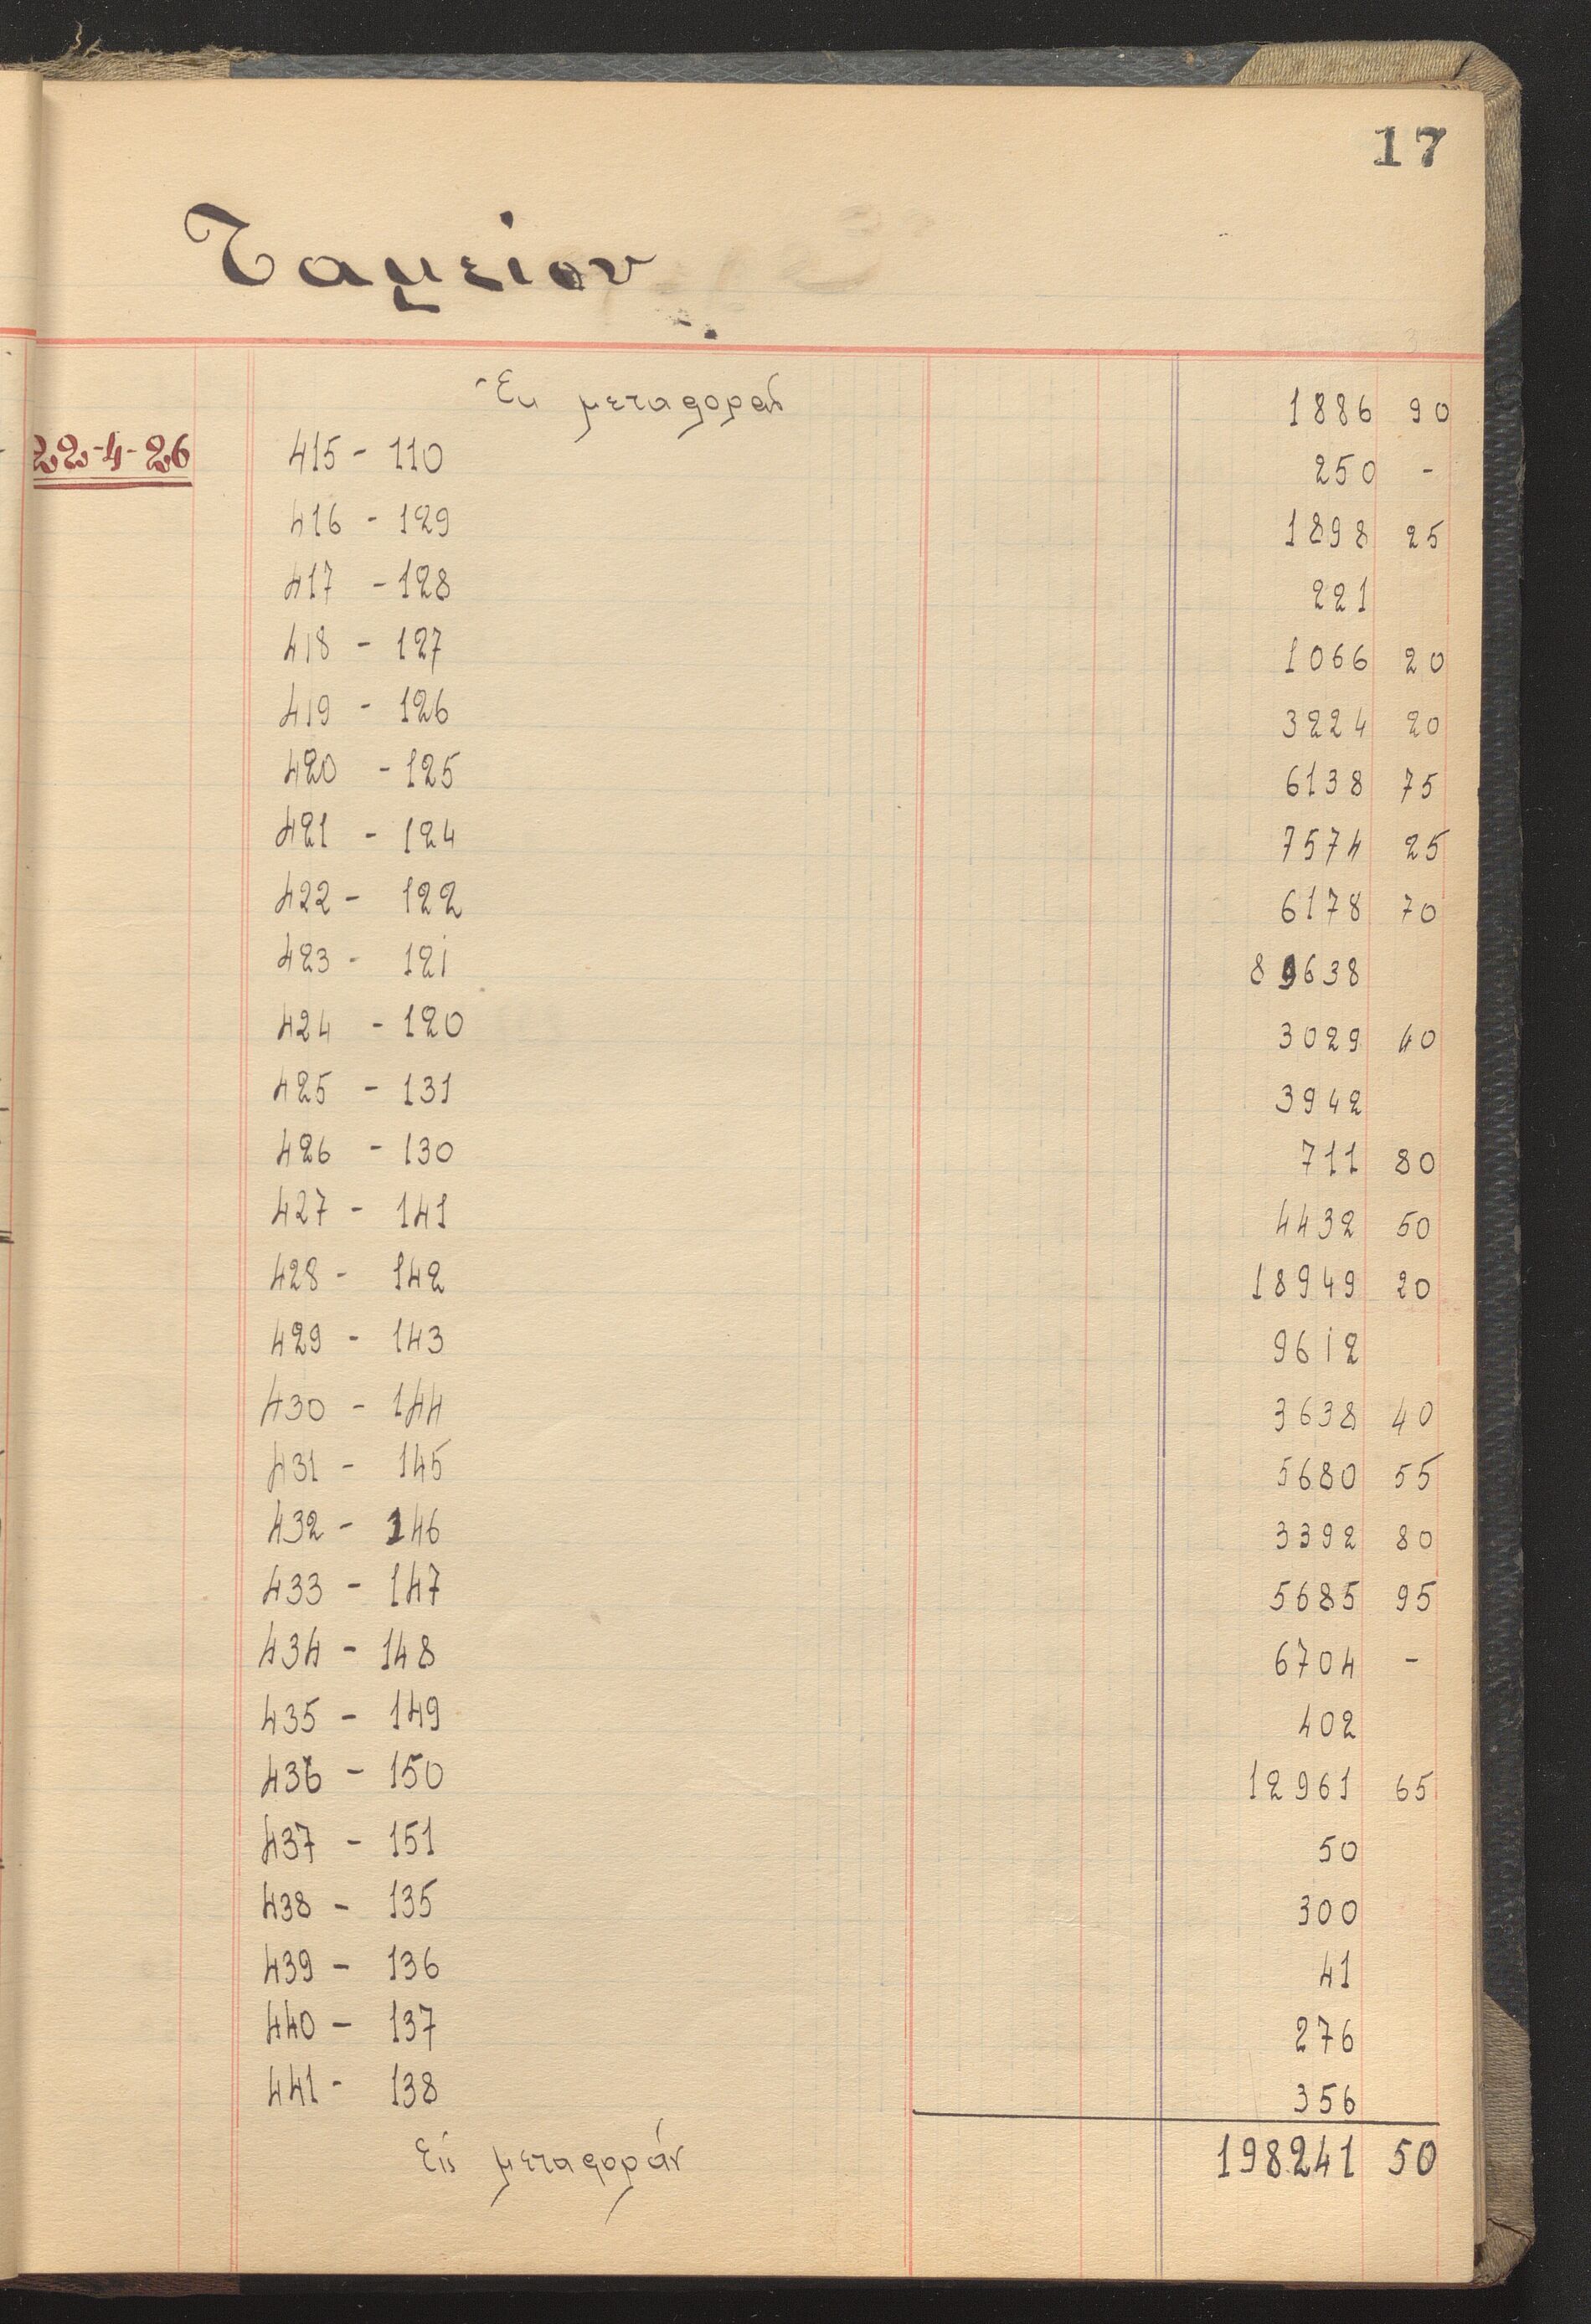 17
Ταμείον
Ἐκ μεταφοράς 1886 90
22-4-26 415 - 110 250 -
416 - 129 1898 25
417 - 128 221
418 - 127 1066 20
419 - 126 3224 20
420 - 125 6138 75
421 - 124 7574 25
422 - 122 6178 70
423 - 121 89638
424 - 120 3029 40
425 - 131 3942
426 - 130 711 80
427 - 141 4432 50
428 - 142 18949 20
429 - 143 9612
430 - 144 3638 40
431 - 145 5680 55
432 - 146 3392 80
433 - 147 5685 95
434 - 148 6704 -
435 - 149 402
436 - 150 12961 65
437 - 151 50
438 - 135 300
439 - 136 41
440 - 137 276
441 - 138 356
Εἰς μεταφοράν 198241 50